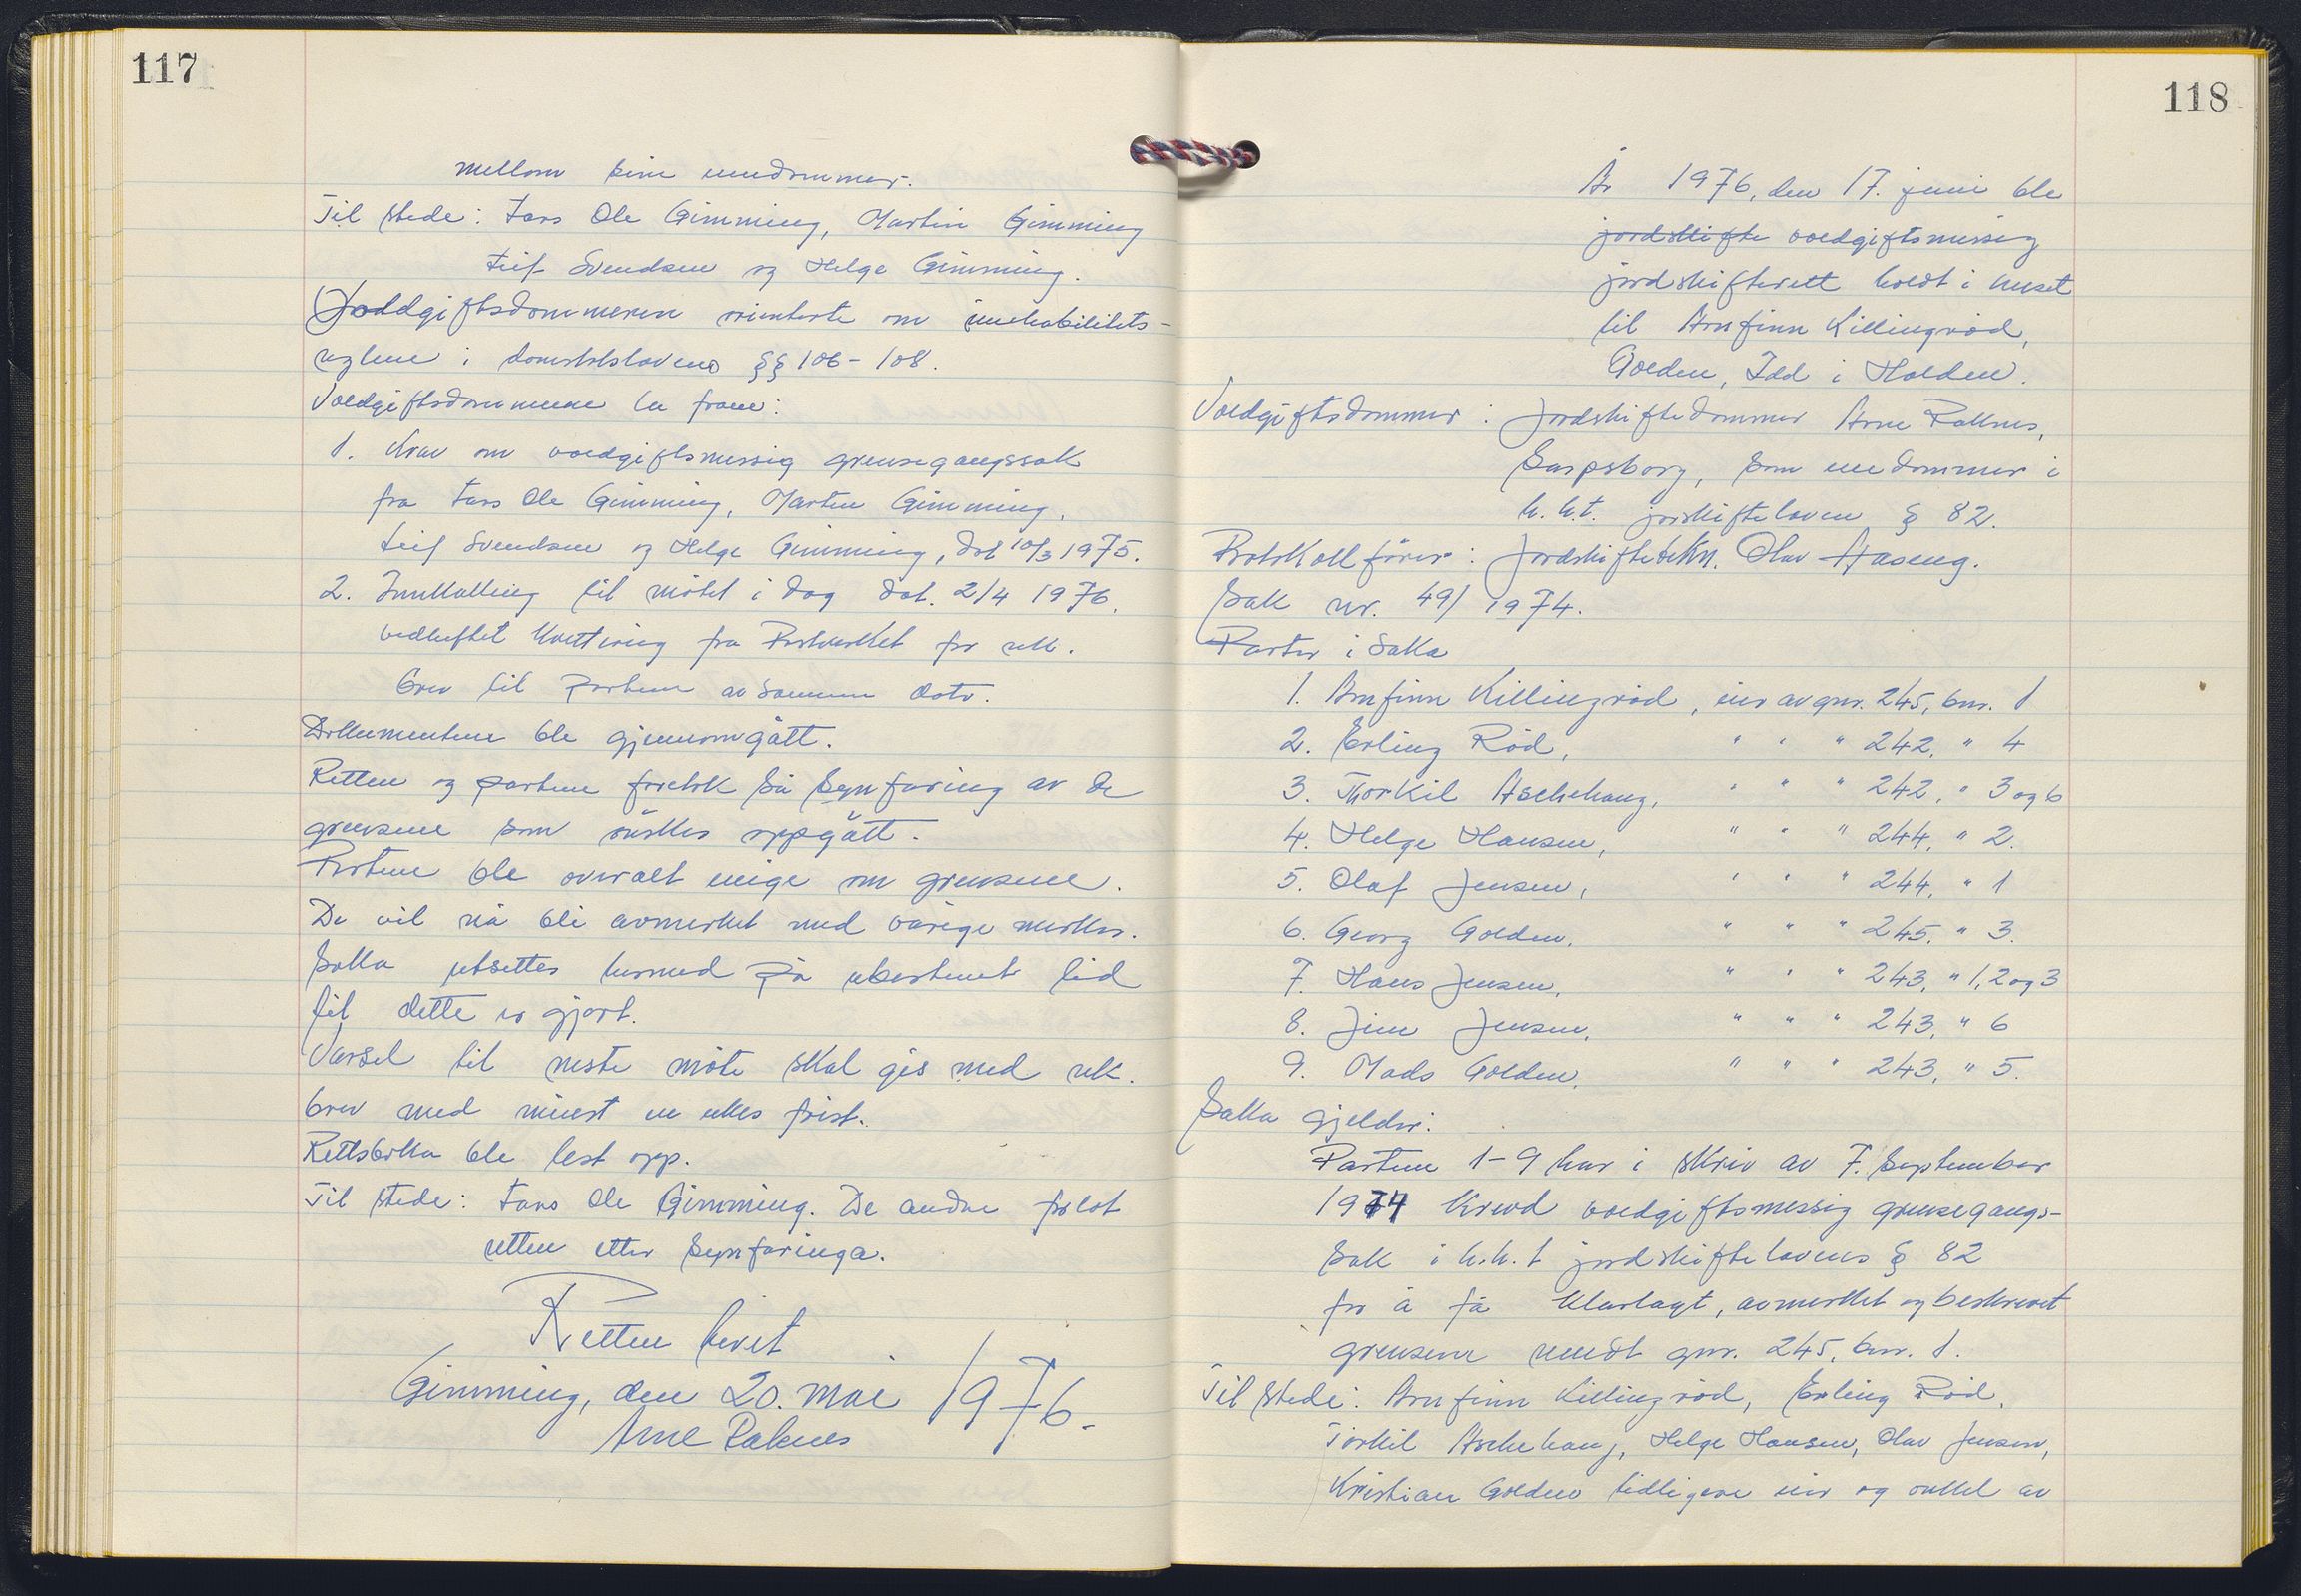 117
mellom sine eiendommer.
Til stede: Lars Ole Gimming, Martin Gimming
Leif Svendsen og Helge Gimming.
Voldgiftsdommeren orienterte om inhabilitets-
reglene i domstolslovens §§ 106-108.
Voldgiftsdommeren la fram:
1. Krav om voldgiftsmessig grensegangssak
fra Lars Ole Gimming, Martin Gimming,
Leif Svendsen og Helge Gimming, dat 10/3 1975.
2. Innkalling til møtet i dag dat. 2/4 1976,
vedheftet kvittering fra Postverket for rek.
brev til partene av samme dato.
Dokumentene ble gjennomgått.
Retten og partene foretok så synfaring av de
grensene som ønskes oppgått.
Partene ble overalt enige om grensene.
De vil nå bli avmerket med varige merker.
Saka utsettes hermed på ubestemt tid
til dette er gjort.
Varsel til neste møte skal gis med rek.
brev med minst en ukes frist.
Rettsboka ble lest opp.
Til stede: Lars Ole Gimming. De andre forlot
retten etter synfaringa.
Retten hevet
Gimming, den 20. mai 1976.
Arne Raknes
118
År 1976, den 17. juni ble
jordskifte voldgiftsmessig
jordskifterett holdt i huset
til Arnfinn Killingrød,
Golden, Idd i Halden.
Voldgiftsdommer: Jordskiftedommer Arne Raknes,
Sarpsborg, som enedommer i
h.h.t. jorskifteloven § 82.
Protokollfører: Jordskiftetekn. Olav Haseng.
Sak nr. 49/1974.
Parter i saka
1. Arnfinn Killingrød, eier av gnr. 245, bnr. 1
2. Erling Rød, " " " 242, " 4
3. Thorkil Aschehaug, " " " 242, " 3 og 6
4. Helge Hansen, " " " 244, " 2.
5. Olaf Jensen, " " " 244, " 1
6. Georg Golden, " " " 245, " 3.
7. Hans Jensen, " " " 243, " 1, 2 og 3
8. Jim Jensen, " " " 243, " 6
9. Mads Golden, " " " 243, " 5.
Saka gjelder:
Partene 1-9 har i skriv av 7. september
1974 krevd voldgiftsmessig grensegangs-
sak i h.h.t jordskiftelovens § 82
for å få klarlagt, avmerket og beskrevet
grensene rundt gnr. 245, bnr. 1.
Til stede: Arnfinn Killingrød, Erling Rød,
Torkil Aschehaug, Helge Hansen, Olav Jensen,
Kristian Golden tidligere eier og onkel av